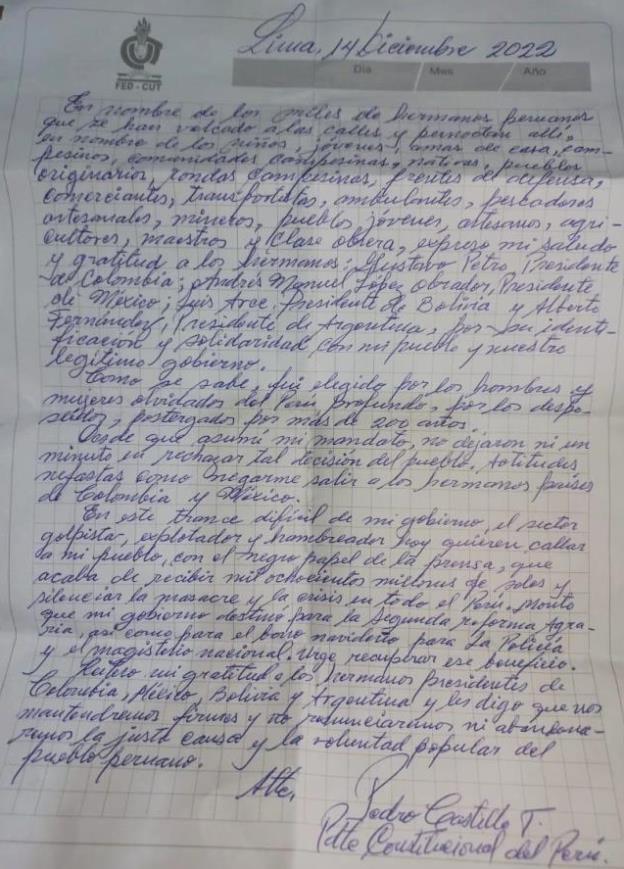 FED - CUT
Lima, 14 Diciembre 2022
Día Mes Año
En nombre de los miles de hermanos peruanos
que se han volcado a las calles y pernoctan allí,
en nombre de los niños, jóvenes, amas de casa, cam-
pesinos, comunidades campesinas, nativas, pueblos
originarios, rondas campesinas, frentes de defensa,
comerciantes, transportistas, ambulantes, pescadores
artesanales, mineros, pueblos jóvenes, artesanos, agri-
cultores, maestros y clase obrera, expreso mi saludo
y gratitud a los hermanos: Gustavo Petro, Presidente
de Colombia; Andrés Manuel López Obrador, Presidente
de México; Luis Arce, Presidente de Bolivia y Alberto
Fernández, Presidente de Argentina, por su identi-
ficación y solidaridad con mi pueblo y nuestro
legítimo gobierno.
Como se sabe, fui elegido por los hombres y
mujeres olvidados del Perú profundo, por los despo-
seídos, postergados por más de 200 años.
Desde que asumí mi mandato, no dejaron ni un
minuto en rechazar tal decisión del pueblo. Actitudes
nefastas como negarme salir a los hermanos países
de Colombia y México.
En este trance difícil de mi gobierno, el sector
golpista, explotador y hambreador hoy quieren callar
a mi pueblo, con el negro papel de la prensa, que
acaba de recibir mil ochocientos millones de soles y
silenciar la masacre y la crisis en todo el Perú. Monto
que mi gobierno destinó para la Segunda reforma Agra-
ria, así como para el bono navideño para La Policía
y el magisterio nacional. Urge recuperar ese beneficio.
Reitero mi gratitud a los hermanos presidentes de
Colombia, México, Bolivia y Argentina y les digo que nos
mantendremos firmes y no renunciaremos ni abandona-
remos la justa causa y la voluntad popular del
pueblo peruano.
Atte,
Pedro Castillo T.
Pdte Constitucional del Perú.